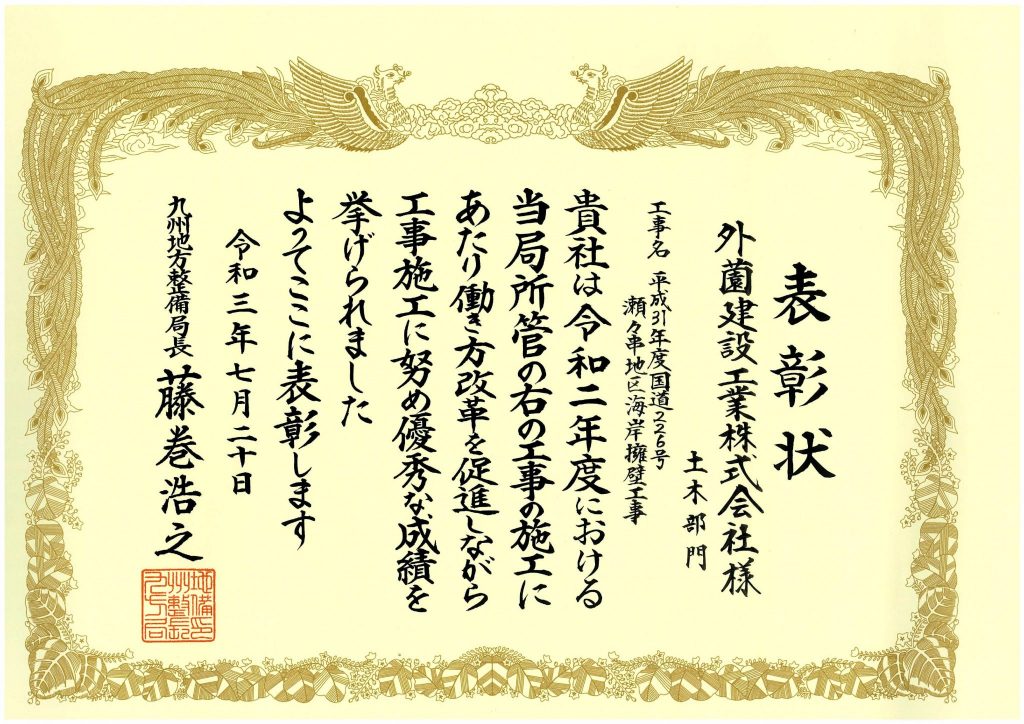 表彰状
外薗建設工業株式会社様
土木部門
工事名 平成31年度国道226号
瀬々串地区海岸擁壁工事
貴社は令和二年度における
当局所管の右の工事の施工に
あたり働き方改革を促進しながら
工事施工に努め優秀な成績を
挙げられました
よってここに表彰します
令和三年七月二十日
九州地方整備局長 藤巻浩之